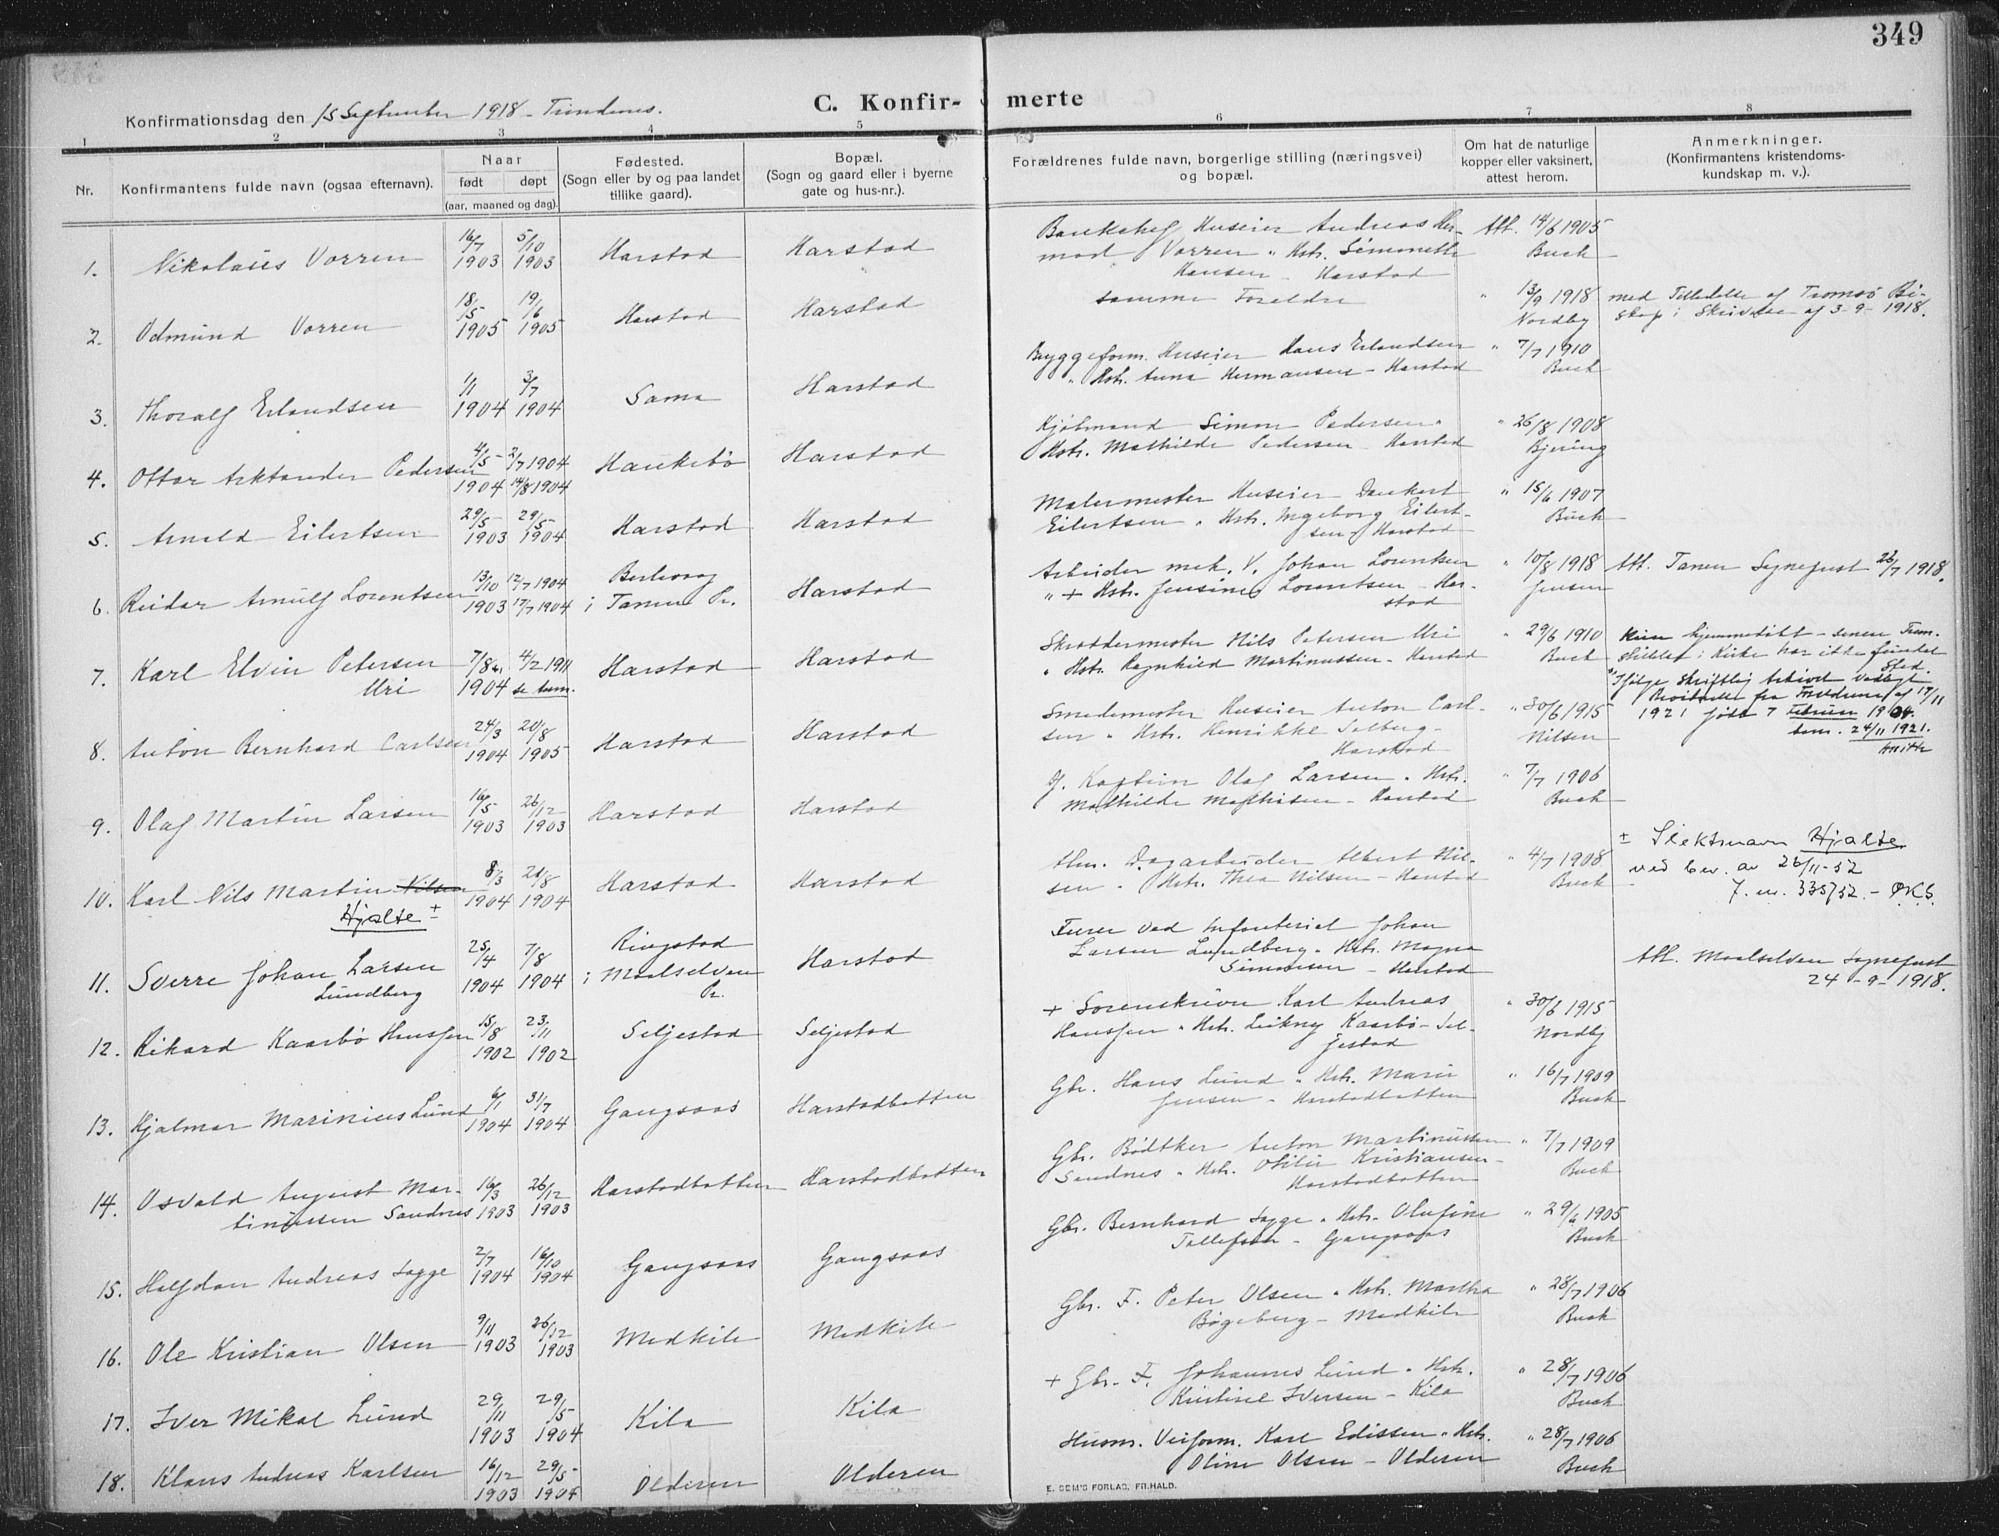 349
C. Konfir- merte
Konfirmationsdag den 15 September 1918 - Trondenes.
1 2 3 4 5 6 7 8
Nr.
Konfirmantens fulde navn (ogsaa efternavn).
Naar
født døpt
(aar, maaned og dag).
Fødested.
(Sogn eller by og paa landet
tillike gaard).
Bopæl.
(Sogn og gaard eller i byerne
gate og hus-nr.).
Forældrenes fulde navn, borgerlige stilling (næringsvei)
og bopæl.
Om hat de naturlige
kopper eller vaksinert,
attest herom.
Anmerkninger.
(Konfirmantens kristendoms-
kundskap m. v.).
1. Nikolaus Vorren 16/7 1903 5/10 1903 Harstad Harstad
Huseier Andreas Her-
mod Vorren Hstr. Simonette
Hansen - Harstad
Att. 14/6 1905
Buch
2. Odmund Vorren 18/5 1905 19/6 1905 Harstad Harstad
samme Foreldre
" 13/9 1918
Nordby
med Tilladelse af Tromsö Bi-
skop i Skrivelse af 3-9-1918.
3. Thoralf Erlandsen 1/1 1904 3/7 1904 Sama Harstad
Bryggeform. Huseier Hans Erlandsen
" Hstr. Anna Hermansen - Harstad
" 7/7 1910
Buch
4. Ottar Arktander Pedersen 4/5 1904 2/7 1904 14/8 1904 Haukebö Harstad
Kjöbmand Simon Pedersen "
Hstr. Mathilde Pedersen - Harstad
" 26/8 1908
Bjering
5. Arnold Eilertsen 29/5 1903 29/5 1904 Harstad Harstad
Malermester Huseier Dankert
Eilertsen " Hstr. Ingeborg Eilert-
sen - Harstad
" 15/6 1907
Buch
6. Reidar Arnulf Lorentsen 13/10 1903 12/7 1904 17/7 1904 Berlevag
i Tanen Pr. Harstad
Arbeider mek. V. Johan Lorentsen
" + Hstr. Jensine Lorentsen - Har-
stad
" 10/8 1918
Jensen
Att. Tanen Sognepræst 26/7 1918.
7. Karl Elvin Petersen
Uri 7/8 1904 4/2 1911 se anm. Harstad Harstad
Skræddermester Nils Petersen Uri
" Hstr. Ragnhild Martinussen - Harstad
" 29/6 1910
Buch
hjemmedöbt - senere Frem-
stilles i Kirke har ikke fundet
Sted.
Ifölge skriftlig Arkivet vedlagt
fra Foreldrene af 17/11
1921 född 7 Februar 1904.
Anm. 24/11 1921.
8. Anton Bernhard Carlsen 24/3 1904 20/8 1905 Harstad Harstad
Smedemester Huseier Anton Carl-
sen " Hstr. Henrikke Solberg -
Harstad
" 30/6 1915
Nilsen
9. Olaf Martin Larsen 16/5 1903 26/12 1903 Harstad Harstad
Kaptein Olaf Larsen " Hstr.
Mathilde Mathisen - Harstad
" 7/7 1906
Buch
10. Karl Nils Martin Nilsen
Hjalte ± 8/3 1904 21/8 1904 Harstad Harstad
Dagarbeider Albert Nil-
sen " Hstr. Thea Nilsen - Harstad
" 4/7 1908
Buch
± Slektsnavn Hjalte
ved bev. av 26/11-52
J. nr. 3357/52. - ØKS.
11. Sverre Johan Larsen
Lundberg 25/4 1904 7/8 1904 Ringstad
i Maalselven
Pr. Harstad
Furer ved Infanteriet Johan
Larsen Lundberg " Hstr. Magna
Simonsen - Harstad
Att. Maalselven Sognepræst
24-9-1918.
12. Rikard Kaarbö Hanssen 15/8 1902 23/11 1902 Seljestad Seljestad
+ Sorenskriver Karl Andreas
Hanssen " Hstr. Leikny Kaarbö - Sel-
jestad
" 30/6 1915
Nordby
13. Hjalmar Marinius Lund 6/1 1904 31/7 1904 Gangsaas Harstadbotten
Gbr. Hans Lund " Hstr. Marie
Jensen - Harstadbotten
" 16/7 1909
Buch
14. Osvald August Mar-
tinussen Sandnes 16/3 1903 26/12 1903 Harstadbotten Harstadbotten
Gbr. Bödtker Anton Martinussen
Sandnes " Hstr. Otilie Kristiansen -
Harstadbotten
" 7/7 1909
Buch
15. Halfdan Andreas Sagge 2/7 1904 16/10 1904 Gangsaas Gangsaas
Gbr. Bernhard Sagge " Hstr. Olufine
Tollefsen - Gangsaas
" 29/6 1905
Buch
16. Ole Kristian Olsen 9/11 1903 26/12 1903 Medkile Medkile
Gbr. F. Peter Olsen " Hstr. Martha
Bögeberg - Medkile
" 28/7 1906
Buch
17. Iver Mikal Lund 29/11 1903 29/5 1904 Kila Kila
+ Gbr. F. Johannes Lund " Hstr.
Kristine Iversen - Kila
" 28/7 1906
Buch
18. Klaus Andreas Karlsen 16/12 1903 29/5 1904 Olderen Olderen
Husm. Veiform. Karl Edissen " Hstr.
Oline Olsen - Olderen
" 28/7 1906
Buch
E. SEM'S FORLAG, FR.HALD.